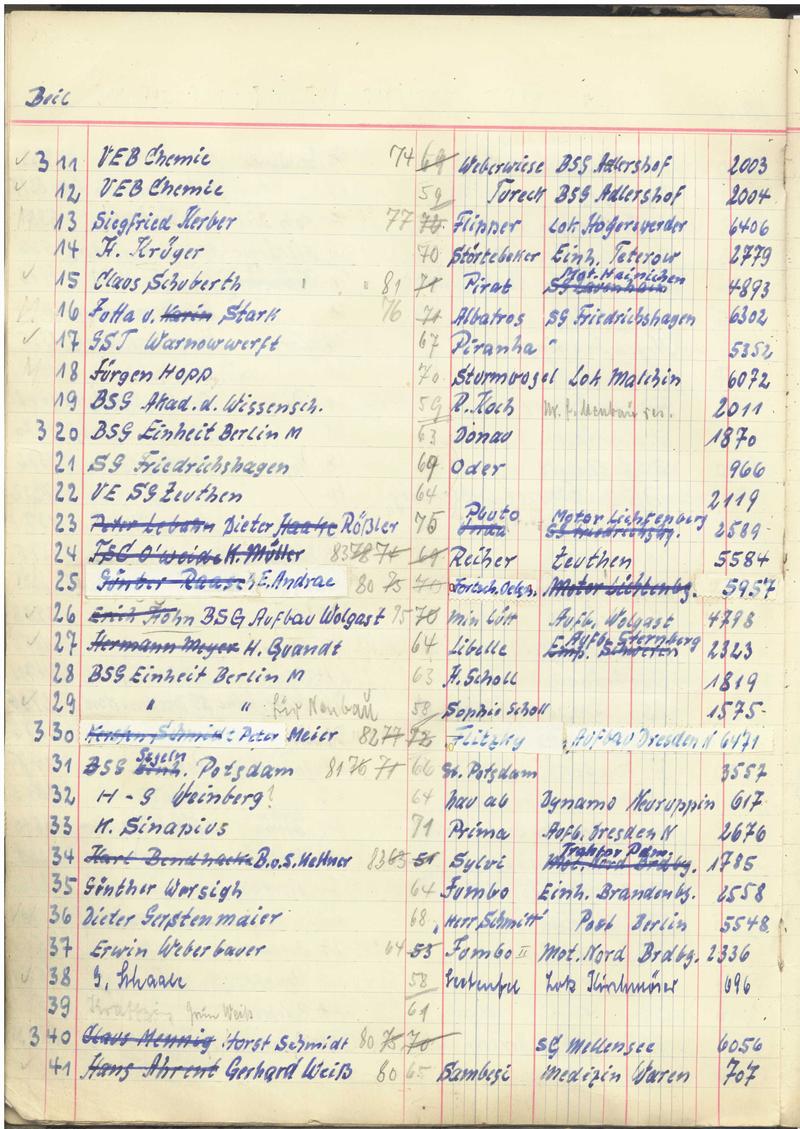 Beil
311 VEB Chemie 74 69 Weberwiese BSG Adlershof 2003
12 VEB Chemie 59 Tureck BSG Adlershof 2004
13 Siegfried Herber 77 Flipper Lok Hoyerswerder 6406
14 H. Krüger 70 Störtebeker Einh. Teterow 2779
15 Claus Schuberth 81 71 Pirat Mot. Hainichen 4893
16 Jutta v. Karin Stark 76 71 Albatros SG Friedrichshagen 6302
17 GST Warnowwerft 67 Piranha " 5352
18 Jürgen Hopp 70 Sturmvogel Lok Malchin 6072
19 BSG Akad. d. Wissensch. 59 R. Koch Nr. f. Neubau res. 2011
320 BSG Einheit Berlin M 63 Donau 1870
21 SG Friedrichshagen 69 Oder 966
22 VE SG Zeuthen 64 2119
23 Peter Lebahn Dieter Haake Rößler 75 Pluto Motor Lichtenberg SG Friedrichshg. 2589
24 TSC O'weide K. Müller 83 78 71 69 Reiher Zeuthen 5584
25 Günter Raasch E. Andrae 80 75 70 Motor Lichtenbg. 5957
26 Erich Hohn BSG Aufbau Wolgast 75 70 min Lütt Aufb. Wolgast 4798
27 Hermann Meyer H. Quandt 64 Libelle Aufb. Sternberg Emp. Schwerin 2323
28 BSG Einheit Berlin M 63 H. Scholl 1819
29 " " für Neubau 58 Sophie Scholl 1575
330 Kersten Schmidt Peter Meier 82 77 72 Flitzky Aufbau Dresden N 6471
31 BSG Segeln Einh. Potsdam 81 76 71 66 St. Potsdam 3557
32 H-G Weinberg? 64 hau ab Dynamo Neuruppin 617
33 K. Sinapius 71 Prima Aufb. Dresden N 2676
34 Karl Bendhack B. o. S. Kellner 83 65 51 Sylvi Traktor Pdm. Mot. Nord Brdbg. 1785
35 Günther Wersigh 64 Jumbo Einh. Brandenbg. 2558
36 Dieter Gerstenmaier 68 "Herr Schmitt" Post Berlin 5548
37 Erwin Weberbauer 64 53 Jumbo II Mot. Nord Brdbg. 2336
38 G. Schaale 58 Seeteufel Lok Kirchmöser 696
39 Grün Weiß 61
340 Claus Mennig Horst Schmidt 80 75 70 SG Mellensee 6056
41 Hans Ahrent Gerhard Weiß 80 65 Sambesi Medizin Waren 707